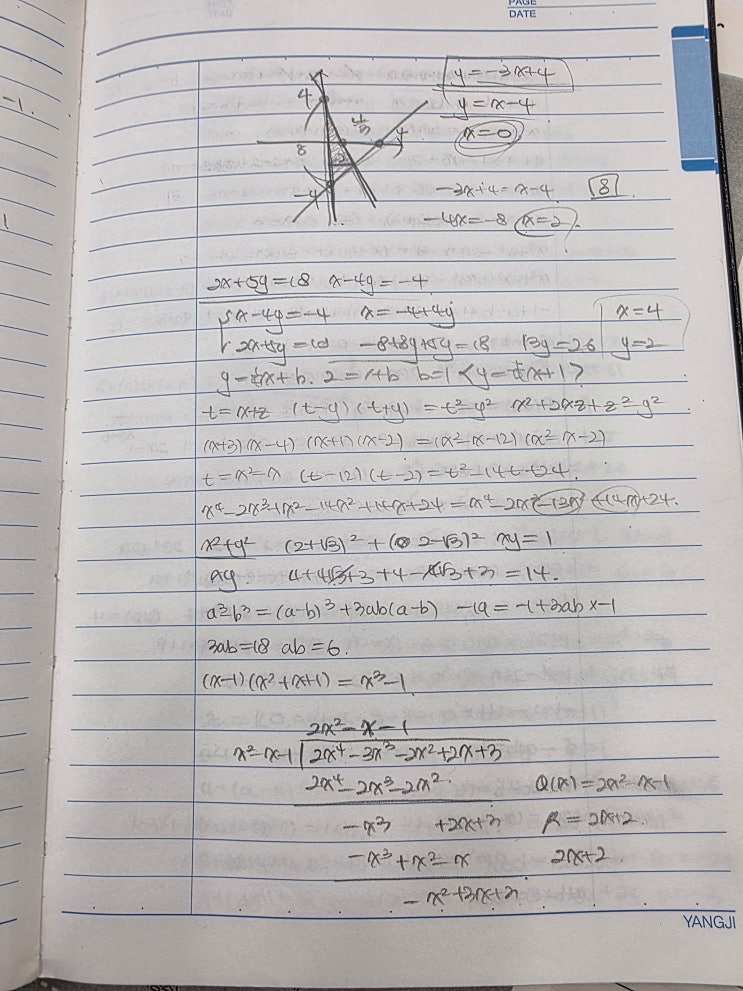 PAGE
DATE
-1.
1
4
4/3
4
8
-4
y=-3x+4
y=x-4
x=0
-3x+4=x-4 8
-4x=-8 x=2
2x+5y=18 x-4y=-4
x-4y=-4 x=-4+4y x=4
2x+5y=18 -8+8y+5y=18 13y=26 y=2
2=1+b b=1
t=x+z (t-y)(t+y)=t²-y² x²+2xz+z²-y²
(x+3)(x-4)(x+1)(x-2)=(x²-x-12)(x²-x-2)
t=x²-x (t-12)(t-2)=t²-14t+24.
x⁴-2x³+x²-14x²+14x+24=x⁴-2x³-13x²+14x+24.
x²+y² (2+√3)²+(2-√3)² xy=1
xy 4+4√3+3+4-4√3+3=14.
a³-b³=(a-b)³+3ab(a-b) -19=-1+3ab×-1
3ab=18 ab=6.
(x-1)(x²+x+1)=x³-1
2x²-x-1
x²-x-1 2x⁴-3x³-2x²+2x+3
2x⁴-2x³-2x² Q(x)=2x²-x-1
-x³ +2x+3 R=2x+2
-x³+x²+x 2x+2
-x²+3x+3
YANGJI